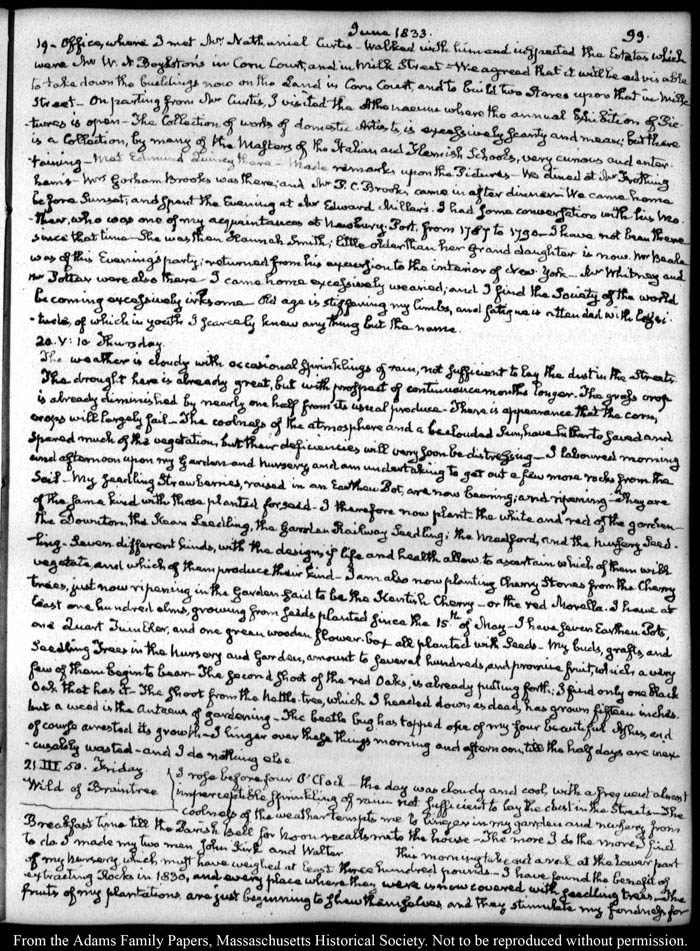 June 1833.
99.
19 - Office, where I met Mr. Nathaniel Curtis - Walked with him and inspected the Estates which
were Mr W. N Boylston's in Corn Court, and in Milk Street - We agreed that it will be advisable
to take down the buildings now on the Land in Corn Court, and to build two Stores upon that in Milk
Street - On parting from Mr Curtis, I visited the Athenaeum where the annual Exhibition of Pic-
-tures is open - The Collection of works of domestic Artists is excessively scanty and mean; but there
is a Collection, by many of the Masters of the Italian and Flemish Schools, very curious and enter-
-taining - Met Edmund Quincy there - Made remarks upon the Pictures - We dined at Mr Frothing
ham's - Mrs Gorham Brooks was there; and Mr P. C. Brooks, came in after dinner - We came home
before Sunset; and spent the Evening at Mr Edward Miller's. I had some conversation with his Mo-
-ther, who was one of my acquaintances at Newbury-Port, from 1787 to 1790 - I have not been there
since that time - She was then Hannah Smith; little older than her grand daughter is now. Mr Beale
was of this Evening's party; returned from his excursion to the interior of New York - Mr Whitney and
Mr Potter were also there - I came home excessively wearied; and I find the Society of the world
becoming excessively irksome - Old age is stiffening my limbs, and fatigue is attended with lassi-
-tude, of which in youth I scarcely knew any thing but the name.
20. V: 10 Thursday.
The weather is cloudy with occasional sprinklings of rain, not sufficient to lay the dust in the Streets.
The drought here is already great, but with prospect of continuance months longer. The grass crop
is already diminished by nearly one half from its usual produce - There is appearance that the corn,
crops will largely fail - The coolness of the atmosphere and a beclouded Sun, have hitherto saved and
spared much of the vegetation, but their deficiencies will very soon be distressing - I laboured morning
and afternoon upon my Garden and Nursery, and am undertaking to get out a few more rocks from the
Soil - My Seedling Strawberries, raised in an Earthen Pot, are now bearing; and ripening - They are
of the same kind with those planted for seed - I therefore now plant the white and red of the garden -
the Downton, the Kean Seedling, the Garden Railway Seedling; the Meadford, and the Nursery Seed-
-ling - Seven different kinds, with the design, if life and health allow to ascertain which of them will
vegetate, and which of them produce their kind - I am also now planting Cherry Stones from the Cherry
trees, just now ripening in the Garden said to be the Kentish Cherry - or the red Morella. I have at
least one hundred elms, growing from seeds planted since the 15th of May - I have seven Earthen Pots,
one Quart and one green wooden flower-box all planted with Seeds - My buds, grafts, and
Seedling Trees in the Nursery and Garden, amount to several hundreds, and promise fruit, which a very
few of them begin to bear - The second shoot of the red Oaks, is already putting forth; I find only one black
Oak that has it - The shoot from the nettle-tree, which I headed down as dead, has grown fifteen inches.
but a weed is the Antaeus of gardening - The beetle bug has topped one of my four beautiful Ashes, and
of course arrested its growth - I linger over these things morning and afternoon, till the half days are inex
-cusably wasted - and I do nothing else
21. III. 50. Friday
Wild of Braintree
I rose before four O'Clock - the day was cloudy and cool, with a frequent almost
imperceptible sprinkling of rain not sufficient to lay the dust in the Streets - The
coolness of the weather tempts me to linger in my garden and nursery from
Breakfast time till the Parish Bell for Noon recalls me to the house - The more I do the more I find
to do. I made my two men John Kirk and Walter This morning take out a rock at the lower part
of my nursery, which must have weighed at least three hundred pounds - I have found the benefit of
extracting Rocks in 1830, and every place where they were is now covered with seedling trees - The
fruits of my plantations, are just beginning to shew themselves, and they stimulate my fondness for
From the Adams Family Papers, Massachusetts Historical Society. Not to be reproduced without permission.